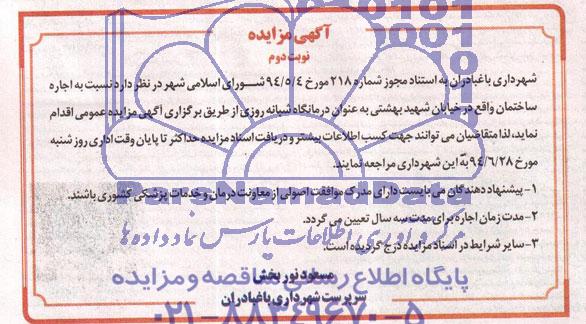 آگهی مزایده
نوبت دوم
شهرداری باغبادران به استناد مجوز شماره ۲۱۸ مورخ ۹۴/۵/۴ شورای اسلامی شهر در نظر دارد نسبت به اجاره
ساختمان واقع در خیابان شهید بهشتی به عنوان درمانگاه شبانه روزی از طریق برگزاری آگهی مزایده عمومی اقدام
نماید، لذا متقاضیان می توانند جهت کسب اطلاعات بیشتر و دریافت اسناد مزایده حداکثر تا پایان وقت اداری روز شنبه
مورخ ۹۴/۶/۲۸ به این شهرداری مراجعه نمایند.
۱- پیشنهاد دهندگان می بایست دارای مدرک موافقت اصولی از معاونت درمان و خدمات پزشکی کشوری باشند.
۲- مدت زمان اجاره برای مدت سه سال تعیین می گردد.
مرکز فرآوری اطلاعات پارس نماد داده ها
۳- سایر شرایط در اسناد مزایده درج گردیده است.
پایگاه اطلاع رسانی مناقصه و مزایده
مسعود نوربخش
سرپرست شهرداری باغبادران
۰۲۱-۸۸۳۴۹۶۷۰-۵